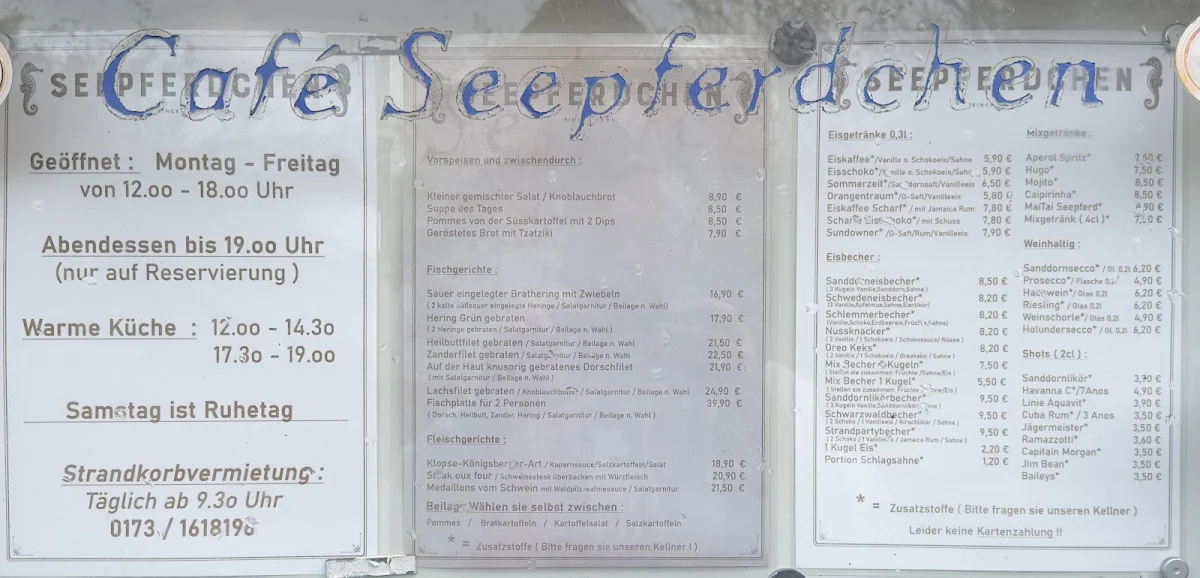 Café Seepferdchen
SEEPFERDCHEN
Geöffnet : Montag - Freitag
von 12.oo - 18.oo Uhr
Abendessen bis 19.oo Uhr
(nur auf Reservierung )
Warme Küche : 12.oo - 14.3o
17.3o - 19.oo
Samstag ist Ruhetag
Strandkorbvermietung :
Täglich ab 9.3o Uhr
0173 / 1618196
SEEPFERDCHEN
Vorspeisen und zwischendurch :
Kleiner gemischter Salat / Knoblauchbrot 8,90 €
Suppe des Tages 8,50 €
Pommes von der Süsskartoffel mit 2 Dips 8,50 €
Geröstetes Brot mit Tzatziki 7,90 €
Fischgerichte :
Sauer eingelegter Brathering mit Zwiebeln 16,90 €
( 2 kalte süßsauer eingelegte Heringe / Salatgarnitur / Beilage n. Wahl)
Hering Grün gebraten 17,90 €
( 2 Heringe gebraten / Salatgarnitur / Beilage n. Wahl )
Heilbuttfilet gebraten / Salatgarnitur / Beilage n. Wahl 21,50 €
Zanderfilet gebraten / Salatgarnitur / Beilage n. Wahl 22,50 €
Auf der Haut knusprig gebratenes Dorschfilet 21,90 €
( mit Salatgarnitur / Beilage n. Wahl )
Lachsfilet gebraten / Knoblauchbutter / Salatgarnitur / Beilage n. Wahl 24,90 €
Fischplatte für 2 Personen 39,90 €
( Dorsch, Heilbutt, Zander, Hering / Salatgarnitur / Beilage n. Wahl )
Fleischgerichte :
Klopse-Königsberger-Art / Kapernsauce/Salzkartoffeln/Salat 18,90 €
Steak oux four / Schweinesteak überbacken mit Würzfleisch 20,90 €
Medaillons vom Schwein mit Waldpilz-sahnesauce / Salatgarnitur 21,50 €
Beilage Wählen sie selbst zwischen :
Pommes / Bratkartoffeln / Kartoffelsalat / Salzkartoffeln
* = Zusatzstoffe ( Bitte fragen sie unseren Kellner ! )
SEEPFERDCHEN
Eisgetränke 0,3l :
Eiskaffee*/Vanille o. Schokoeis/Sahne 5,90 €
Eisschoko*/Vanille o. Schokoeis/Sahne 5,90 €
Sommerzeit*/Sanddornsaft/Vanilleeis 6,50 €
Orangentraum*/O-Saft/Vanilleeis 5,80 €
Eiskaffee Scharf* / mit Jamaica Rum 7,80 €
Scharfe Eisschoko* / mit Schuss 7,80 €
Sundowner* /O-Saft/Rum/Vanilleeis 7,90 €
Eisbecher :
Sanddorneisbecher* 8,50 €
( 3 Kugeln Vanille,Sanddorn,Sahne )
Schwedeneisbecher* 8,20 €
(3 Vanille,Apfelmus,Sahne,Eierlikör)
Schlemmerbecher* 8,20 €
(Vanille,Schoko,Erdbeereis,Früchte,Sahne)
Nussknacker* 8,20 €
( 2 Vanille / 1 Schokoeis / Schokosauce/ Nüsse )
Oreo Keks* 8,20 €
( 2 Vanille / 1 Schokoeis / Oreokeks / Sahne )
Mix Becher Kugeln* 7,50 €
( Stellen sie zusammen: Früchte /Sahne/Eis )
Mix Becher 1 Kugel* 5,50 €
( Stellen sie zusammen: Früchte /Sahne/Eis )
Sanddornlikörbecher* 9,50 €
( 3 Kugeln Vanille,Sanddornlikör,Sahne )
Schwarzwaldbecher* 9,50 €
( 2 Schoko / 1 Vanilleeis / Kirschlikör / Sahne )
Strandpartybecher* 9,50 €
( 2 Schoko / 1 Vanilleeis / Jamaica Rum / Sahne )
1 Kugel Eis* 2,20 €
Portion Schlagsahne* 1,20 €
Mixgetränke :
Aperol Spritz* 7,50 €
Hugo* 7,50 €
Mojito* 8,50 €
Caipirinha* 8,50 €
MaiTai Seepferd* 8,90 €
Mixgetränk ( 4cl )* 7,50 €
Weinhaltig :
Sanddornsecco* / Gl. 0,2l 6,20 €
Prosecco*/ Flasche 4,90 €
Hauswein*/ Glas 0,2l 6,20 €
Riesling* / Glas 0,2l 6,20 €
Weinschorle*/ Glas 0,2l 4,90 €
Holundersecco* / Gl. 0,2L 6,20 €
Shots ( 2cl ) :
Sanddornlikör* 3,70 €
Havanna C*/7Anos 4,90 €
Linie Aquavit* 3,90 €
Cuba Rum* / 3 Anos 3,50 €
Jägermeister* 3,50 €
Ramazzotti* 3,60 €
Capitain Morgan* 3,50 €
Jim Bean* 3,50 €
Baileys* 3,50 €
* = Zusatzstoffe ( Bitte fragen sie unseren Kellner )
Leider keine Kartenzahlung !!